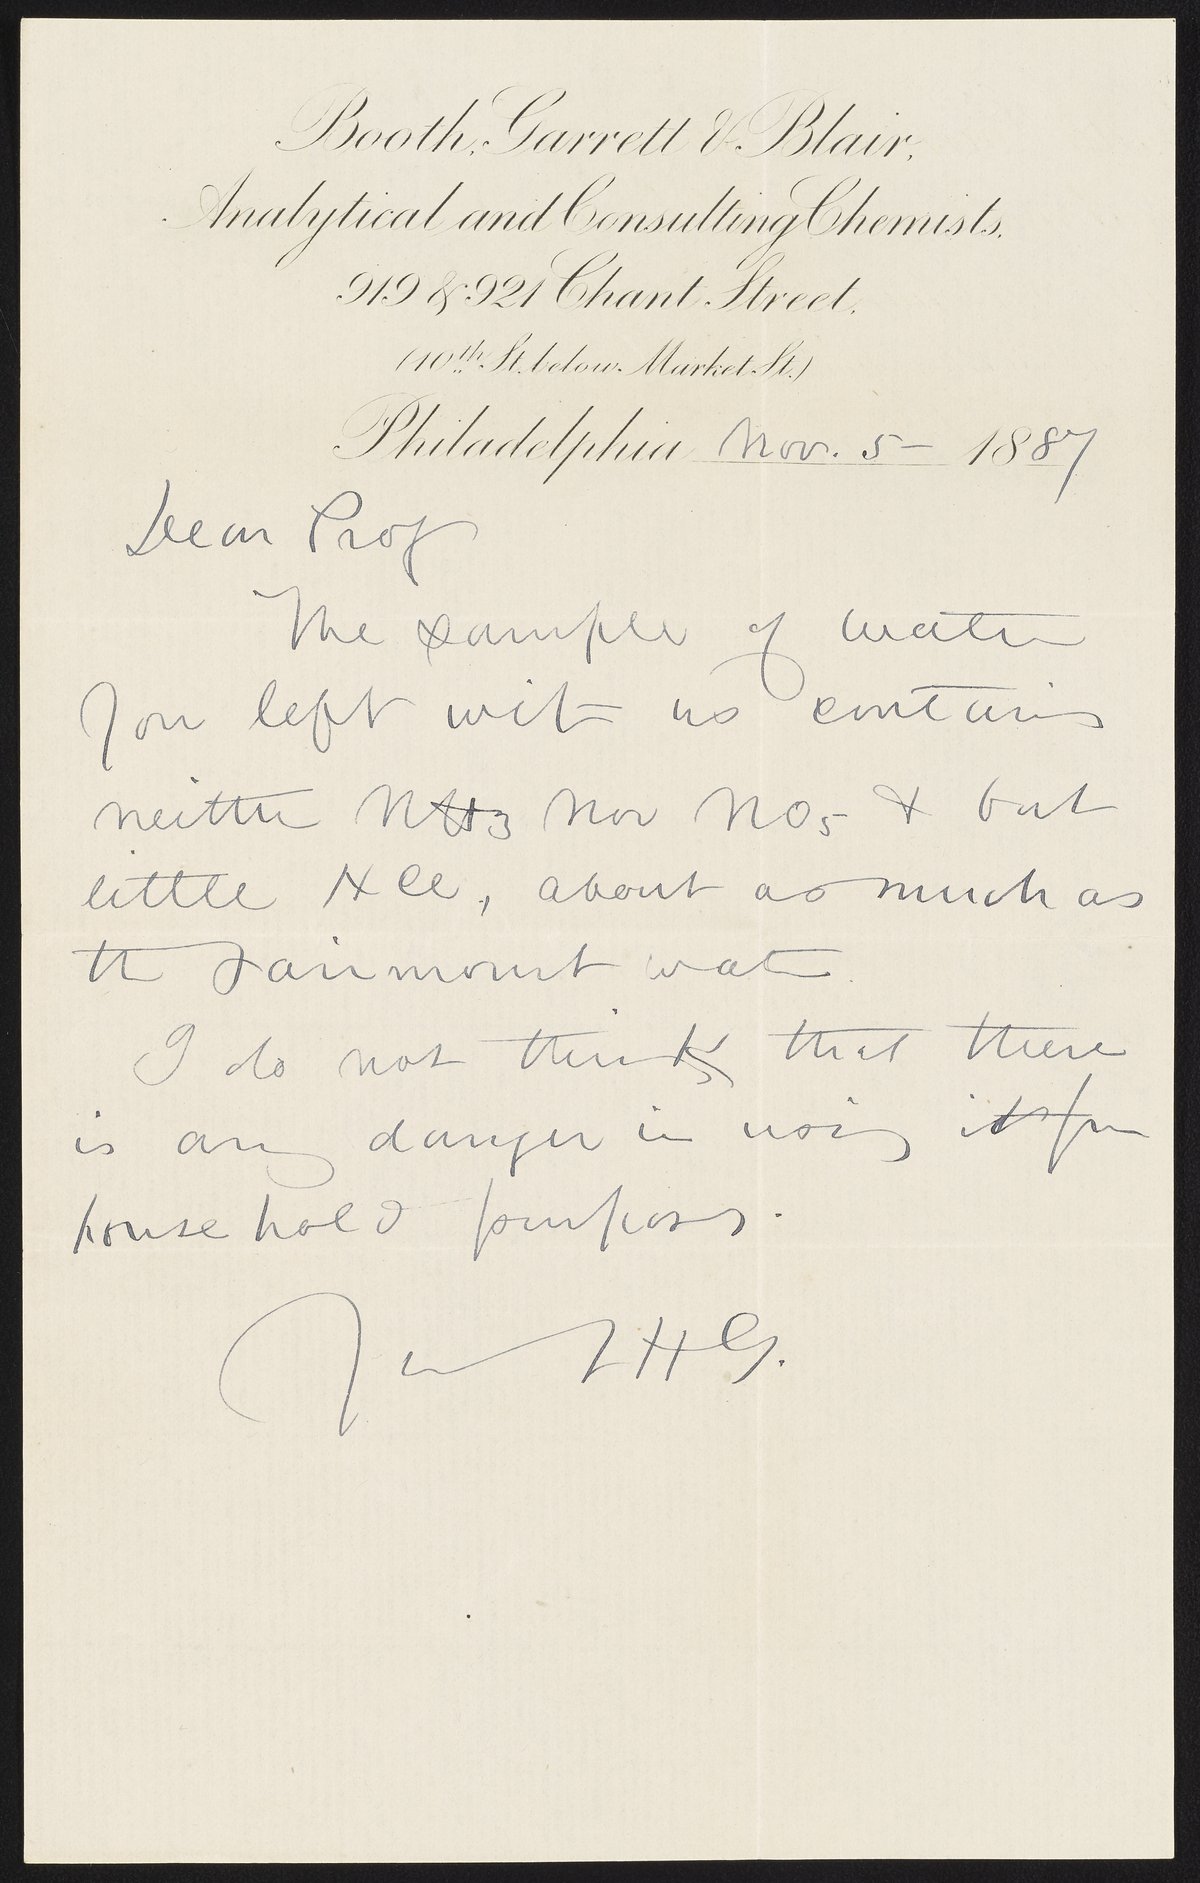 Booth, Garrett & Blair,
Analytical and Consulting Chemists,
919 & 921 Chant Street,
(10th St. below Market St.)
Philadelphia Nov. 5 - 1887
Dear Prof
The sample of water
you left with us contains
neither NH3 nor NO5 & but
little HCl, about as much as
the Fairmount water
I do not think that there
is any danger in using it for
household purposes.
THG.